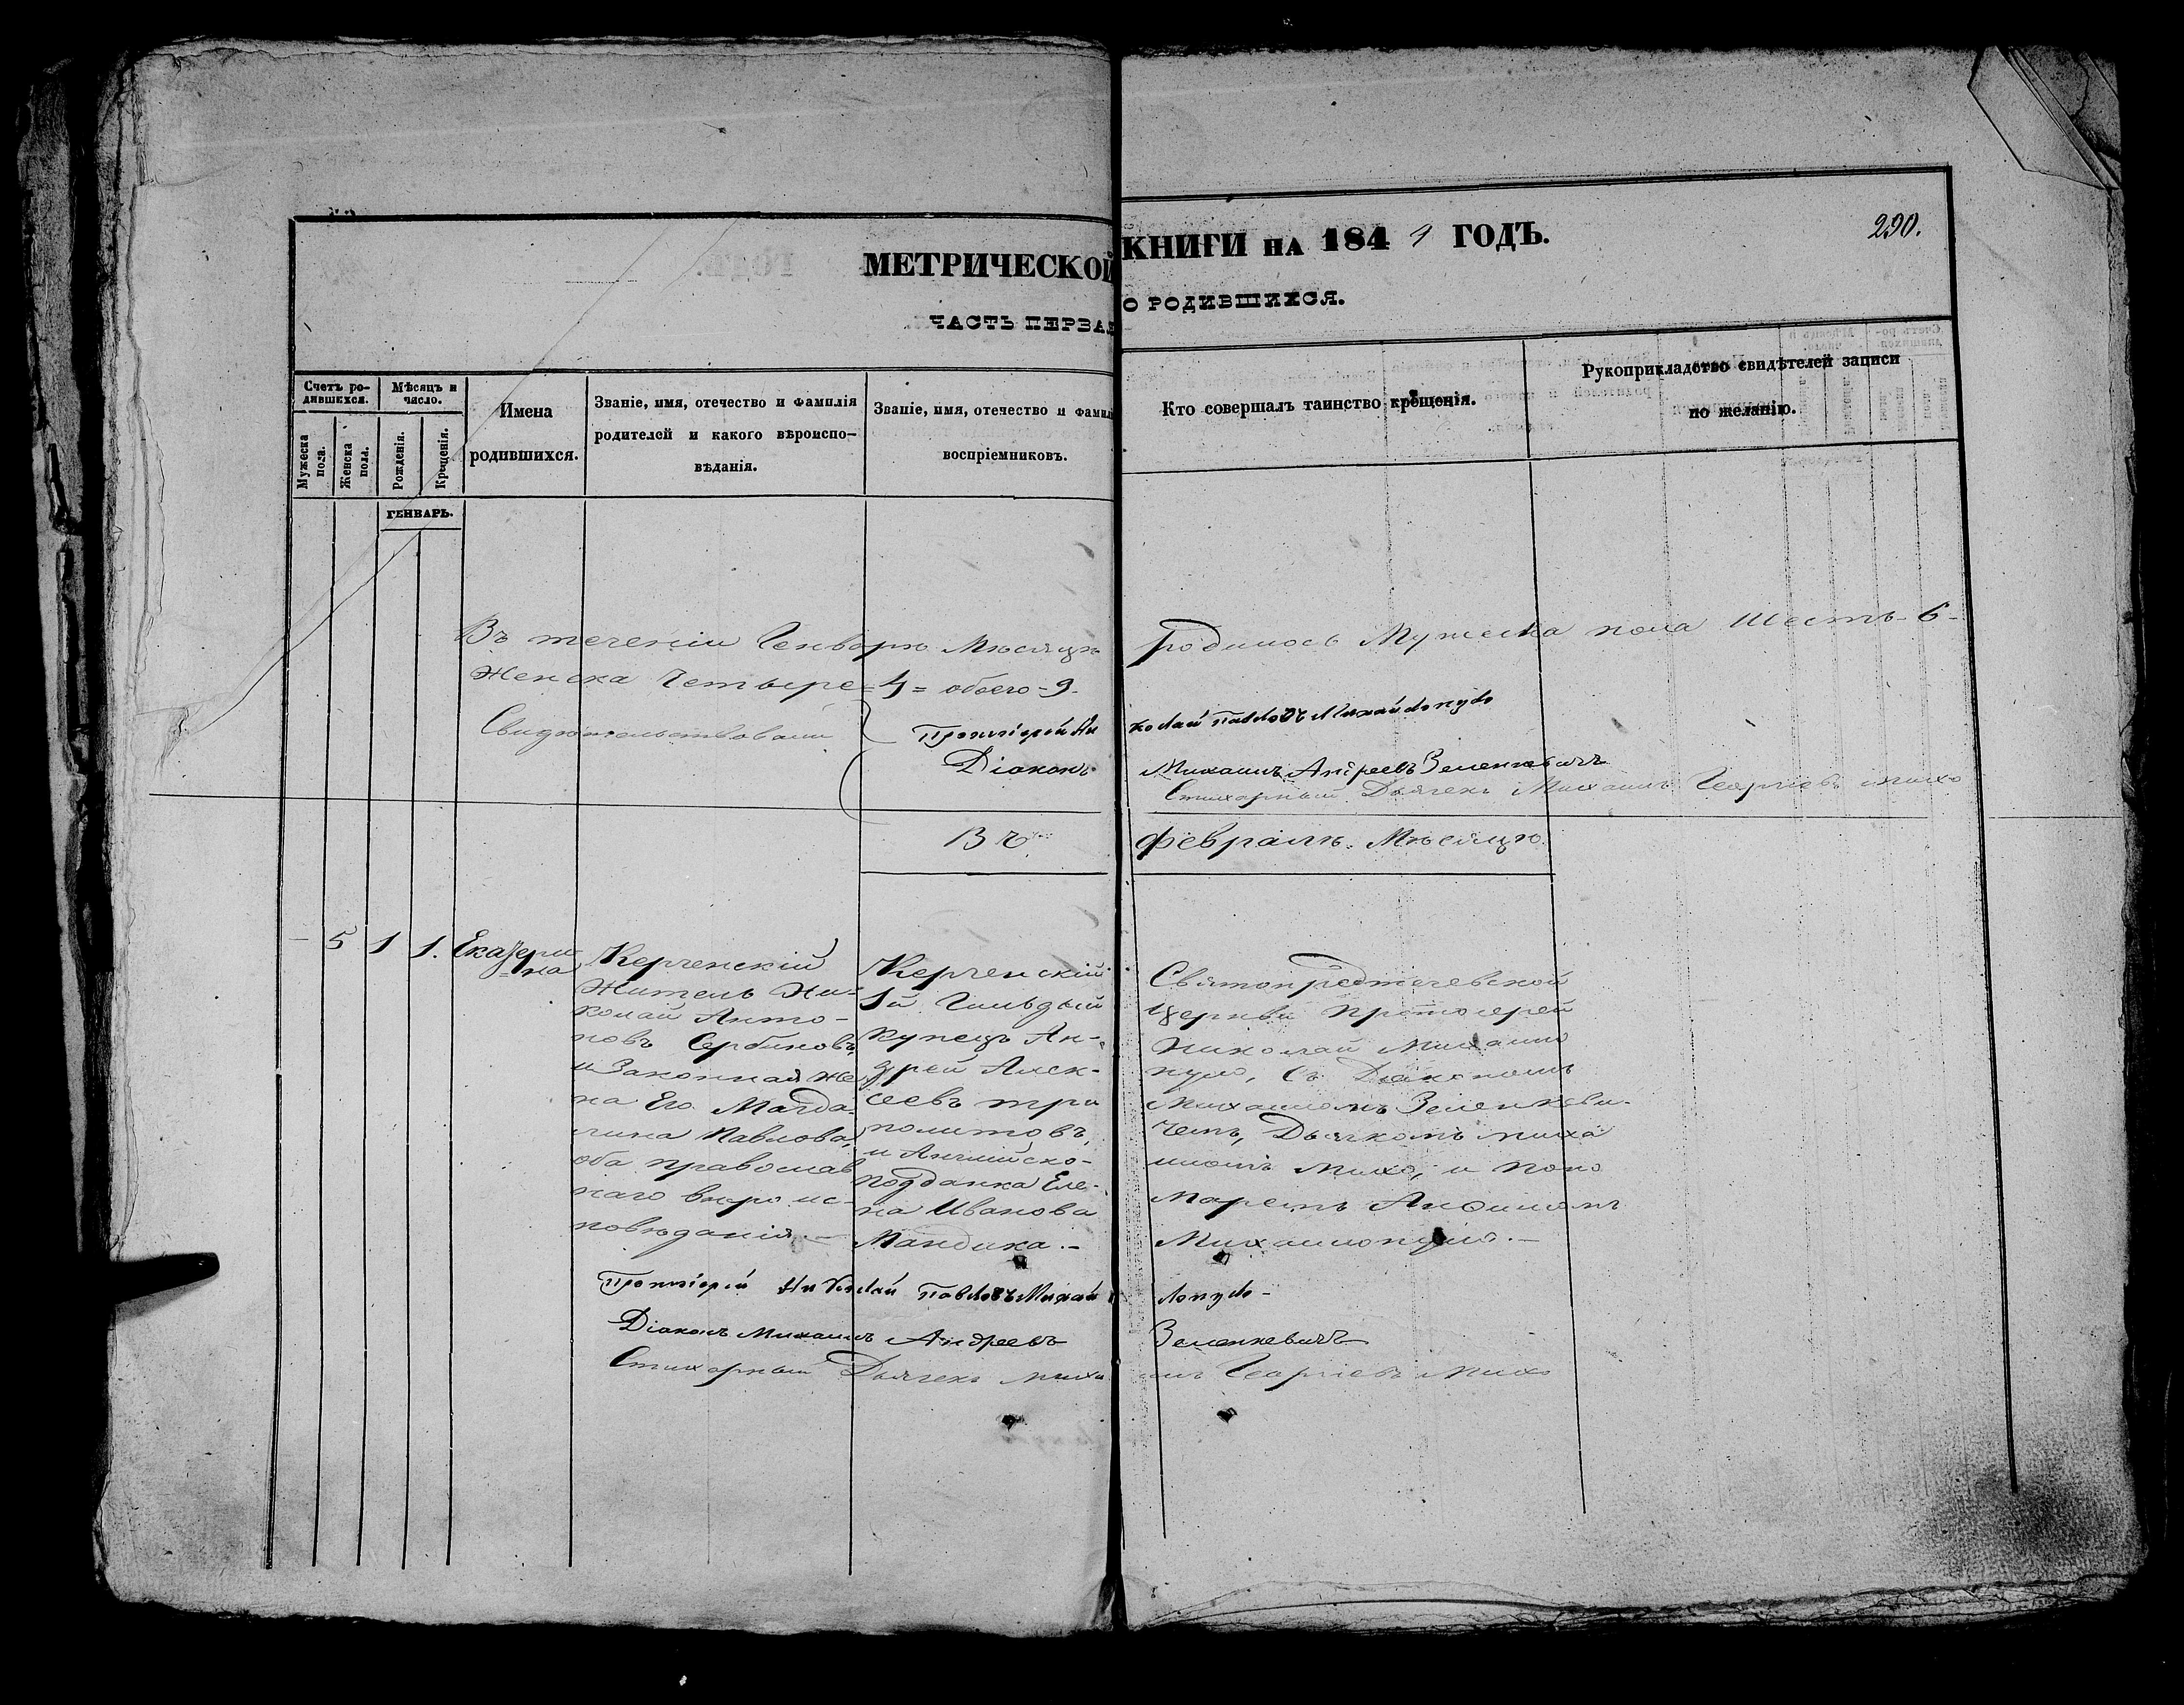 МЕТРИЧЕСКОЙ КНИГИ НА 184 9 ГОДЪ.
290.
ЧАСТЬ ПЕРВАЯ О РОДИВШИХСЯ.
Счетъ ро-
дившихся.
Мужеска пола.
Женска пола.
Мѣсяцъ и
число.
Рожденія.
Крещенія.
Имена
родившихся.
Званіе, имя, отечество и фамилія
родителей и какого вѣроиспо-
вѣданія.
Званіе, имя, отечество и фамил
воспріемниковъ.
Кто совершалъ таинство крещенія.
Рукоприкладство свидѣтелей записи
по желанію.
ГЕНВАРЬ.
Въ теченіи Генваря Мѣсяца родилось Мужеска пола Шесть-6-
Женска Четыре=4= обоего-9-
Свидѣтельствовали
Протоіерей Николай Павловъ Михайлопуло
Діаконъ Михаилъ Андреевъ Зеленкевичъ
Стихарный Дьячекъ Михаилъ Георгіевъ Михо
Въ Февралѣ Мѣсяцѣ
5 1 1. Екатери-
на
Керченскій
Житель Ни-
колай Анто-
новъ Сербиновъ
и Законная Же
на Его Магда-
лина Павлова,
оба православ
наго вѣроис-
повѣданія.-
Керченскій
1й Гильдіи
купецъ Ан-
дрей Алек-
сеевъ три
политовъ,
и Англійско-
подданка Еле-
на Иванова
Мандика.-
Святопредтечевской
Церкви Протоіерей
Николай Михаило
пуло, Съ Діакономъ
Михаиломъ Зеленкеви-
чемъ, Дьячкомъ миха
иломъ Михо, и Поно
маремъ Анфимомъ
Михаилопуло.-
Протоіерей Николай Павловъ Михайлопуло-
Діаконъ Михаилъ Андреевъ Зеленкевичъ
Стихарный Дьячекъ Михаилъ Георгіевъ Михо